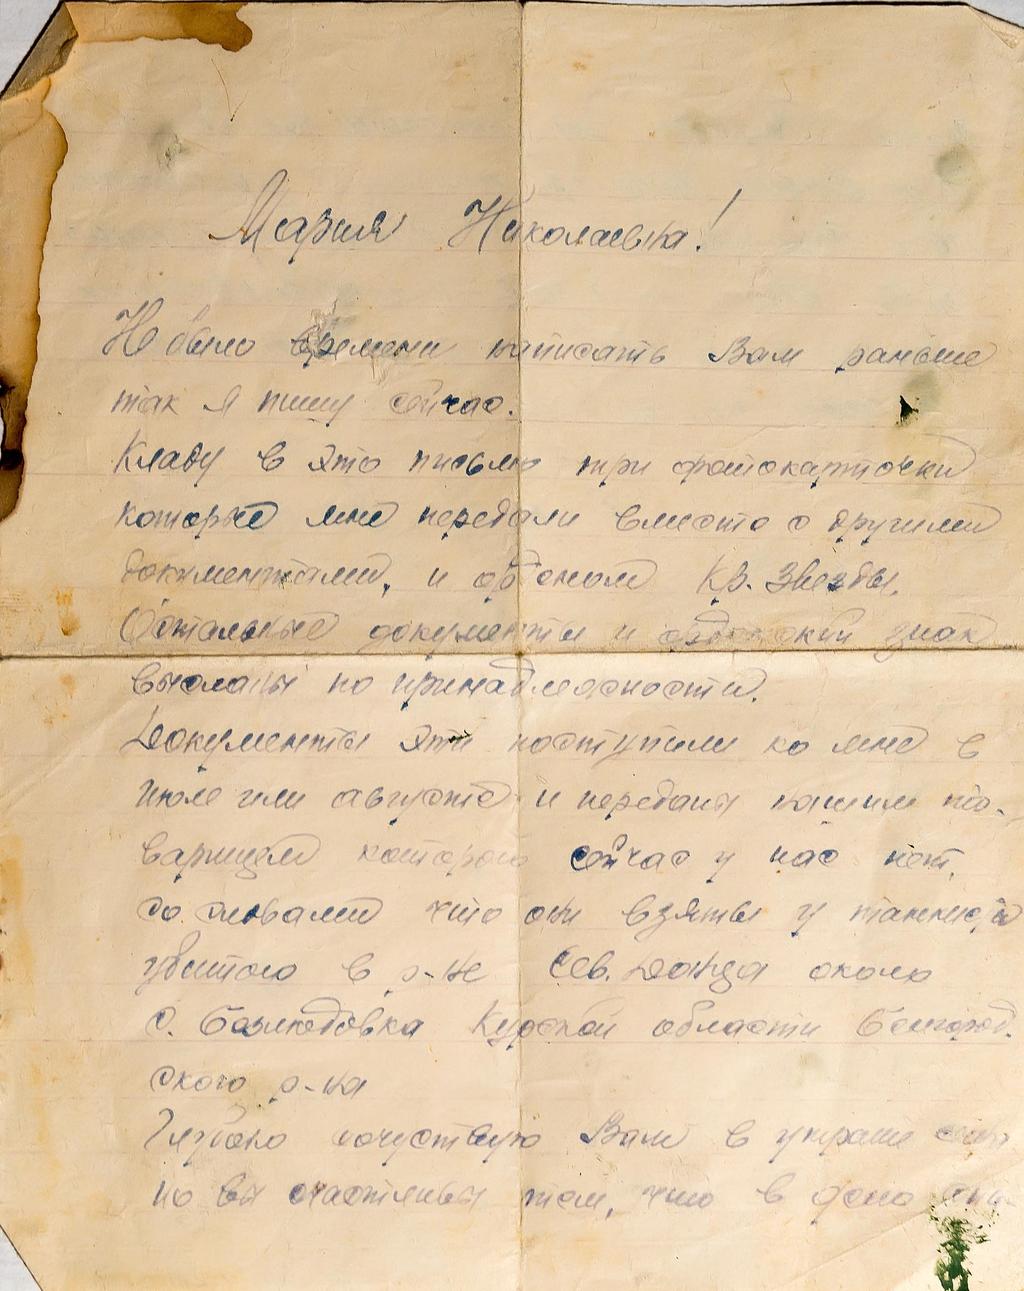 Мария Николаевна!
Не было времени написать Вам раньше
так я пишу сейчас.
Кладу в это письмо три фотокарточки
которые мне передали вместе с другими
документами, и орденом Кр. Звезды.
Остальные документы и знак
высланы по принадлежности.
Документы эти поступили ко мне в
июле или августе и переданы нашим то-
варищем которого сейчас у нас нет,
со словами что они взяты у танкиста
убитого в р-не Сев. Донца около
с. Безлюдовка Курской области Белгород.
ского р-на
Глубоко сочувствую Вам в утрате
но вы счастливы тем, что в